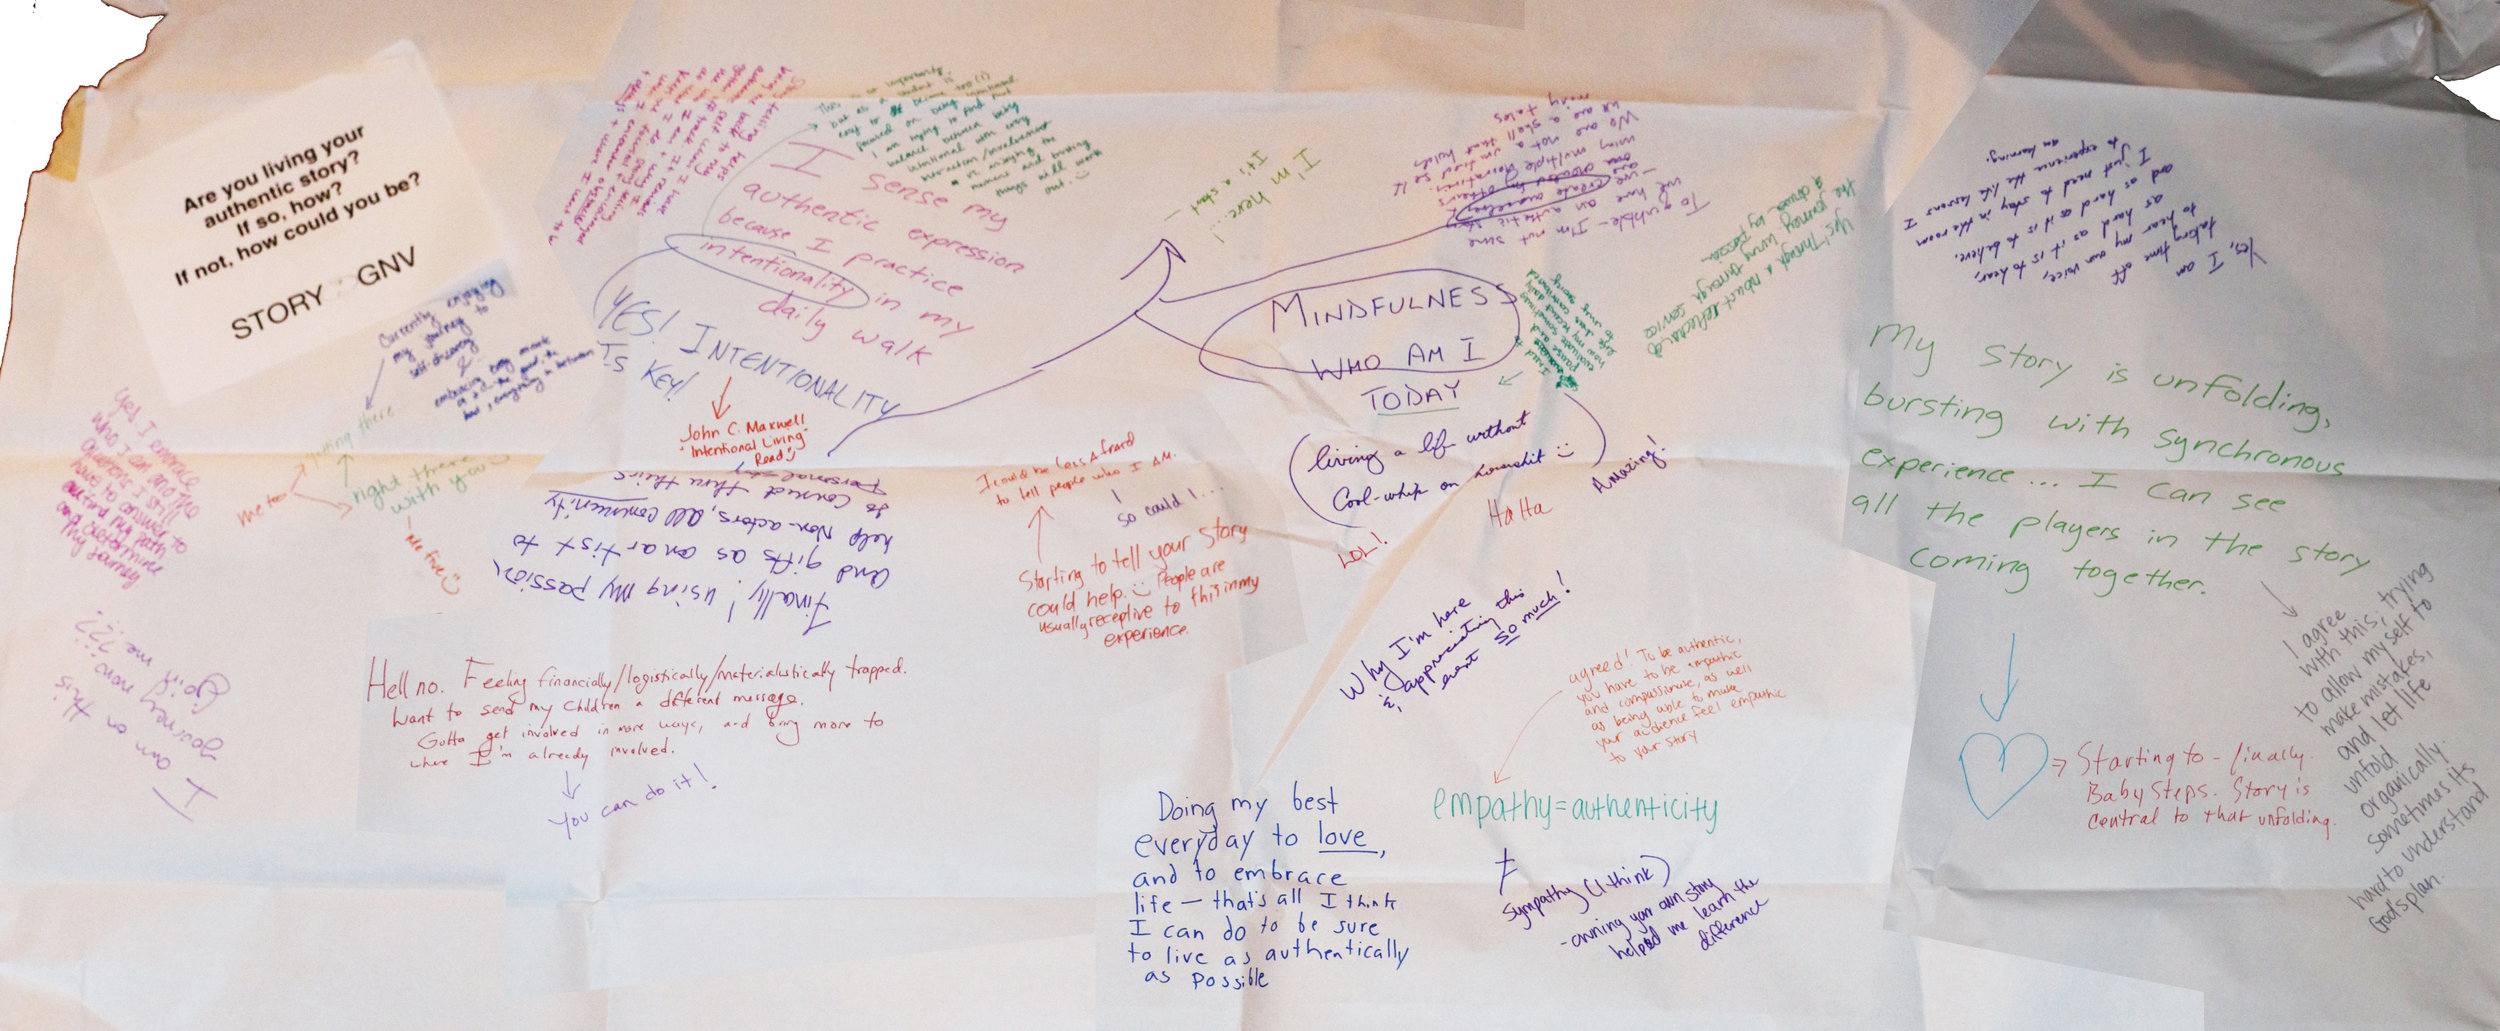 Are you living your
authentic story?
If so, how?
If not, how could you be?
STORY GNV
Currently
my journey to
self-discovery
&
embracing every
everything in between
getting there
me too
right there
with you
- me five
Yes. I embrace
who I am and the
questions I still
have to answer to
my path
and determine
my journey
I am on this
journey now...
Join me ???
but as a student is
easy to become too (!)
focused on being intentional
I am trying to find that
balance between being
intentional with every
interaction/involvement
enjoying the
moment and trusting
things will work
out.
I sense my
authentic expression
because I practice
intentionality in my
daily walk
YES! INTENTIONALITY
IS KEY!
John C. Maxwell
"Intentional Living"
Read
Finally! using my passion,
and gifts as an artist to
help Non-actors, all community
to connect thru theirs
personal
Hell no. Feeling financially/logistically/materialistically trapped.
Want to send my children a different message.
Gotta get involved in more ways, and bring more to
where I'm already involved.
You can do it!
I'm here...!
It's a start —
To quibble - I'm not sure
we have an authentic
- we create ourselves
using multiple narratives.
We are not a unified self
we are a shell that holds
many tales
MINDFULNESS
WHO AM I
TODAY
Yes! Through a
the journey through service
& driven by passion
(living a life without
Cool-whip on horseshit )
Amazing!
Ha Ha
LOL!
I could be less afraid
to tell people who I am.
so could I...
Starting to tell your story
could help. People are
usually receptive to this in my
experience.
Why I'm here
is, appreciating this
event so much!
agreed! To be authentic,
you have to be empathic
and compassionate, as well
as being able to make
your audience feel empathic
to your story
empathy=authenticity
≠
sympathy (I think)
- owning your own story
helped me learn the
difference
Doing my best
everyday to love,
and to embrace
life — that's all I think
I can do to be sure
to live as authentically
as possible
Yes, I am
taking time off
to hear my own voice,
as hard as it is to hear,
and as hard as it is to believe.
I just need to stay in the room
to experience the life lessons I
am learning.
My story is unfolding,
bursting with synchronous
experience... I can see
all the players in the story
coming together.
I agree
with this; trying
to allow myself to
make mistakes,
and let life
unfold
organically.
sometimes its
hard to understand
God's plan.
Starting to - finally.
Baby Steps. Story is
central to that unfolding.